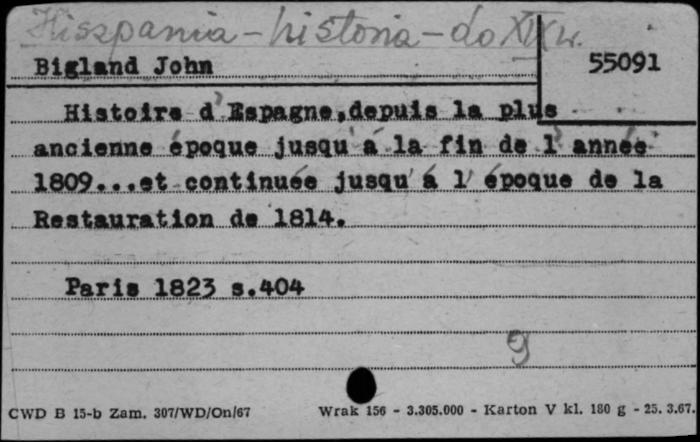 Hiszpania - historia - do XIX w.
Bigland John
55091
Histoire d'Espagne,depuis la plus
ancienne époque jusqu'á la fin de l'année
1809...et continuée jusqu'á l'époque de la
Restauration de 1814.
Paris 1823 s.404
g
CWD B 15-b Zam. 307/WD/On/67
Wrak 156 - 3.305.000 - Karton V kl. 180 g - 25. 3.67.